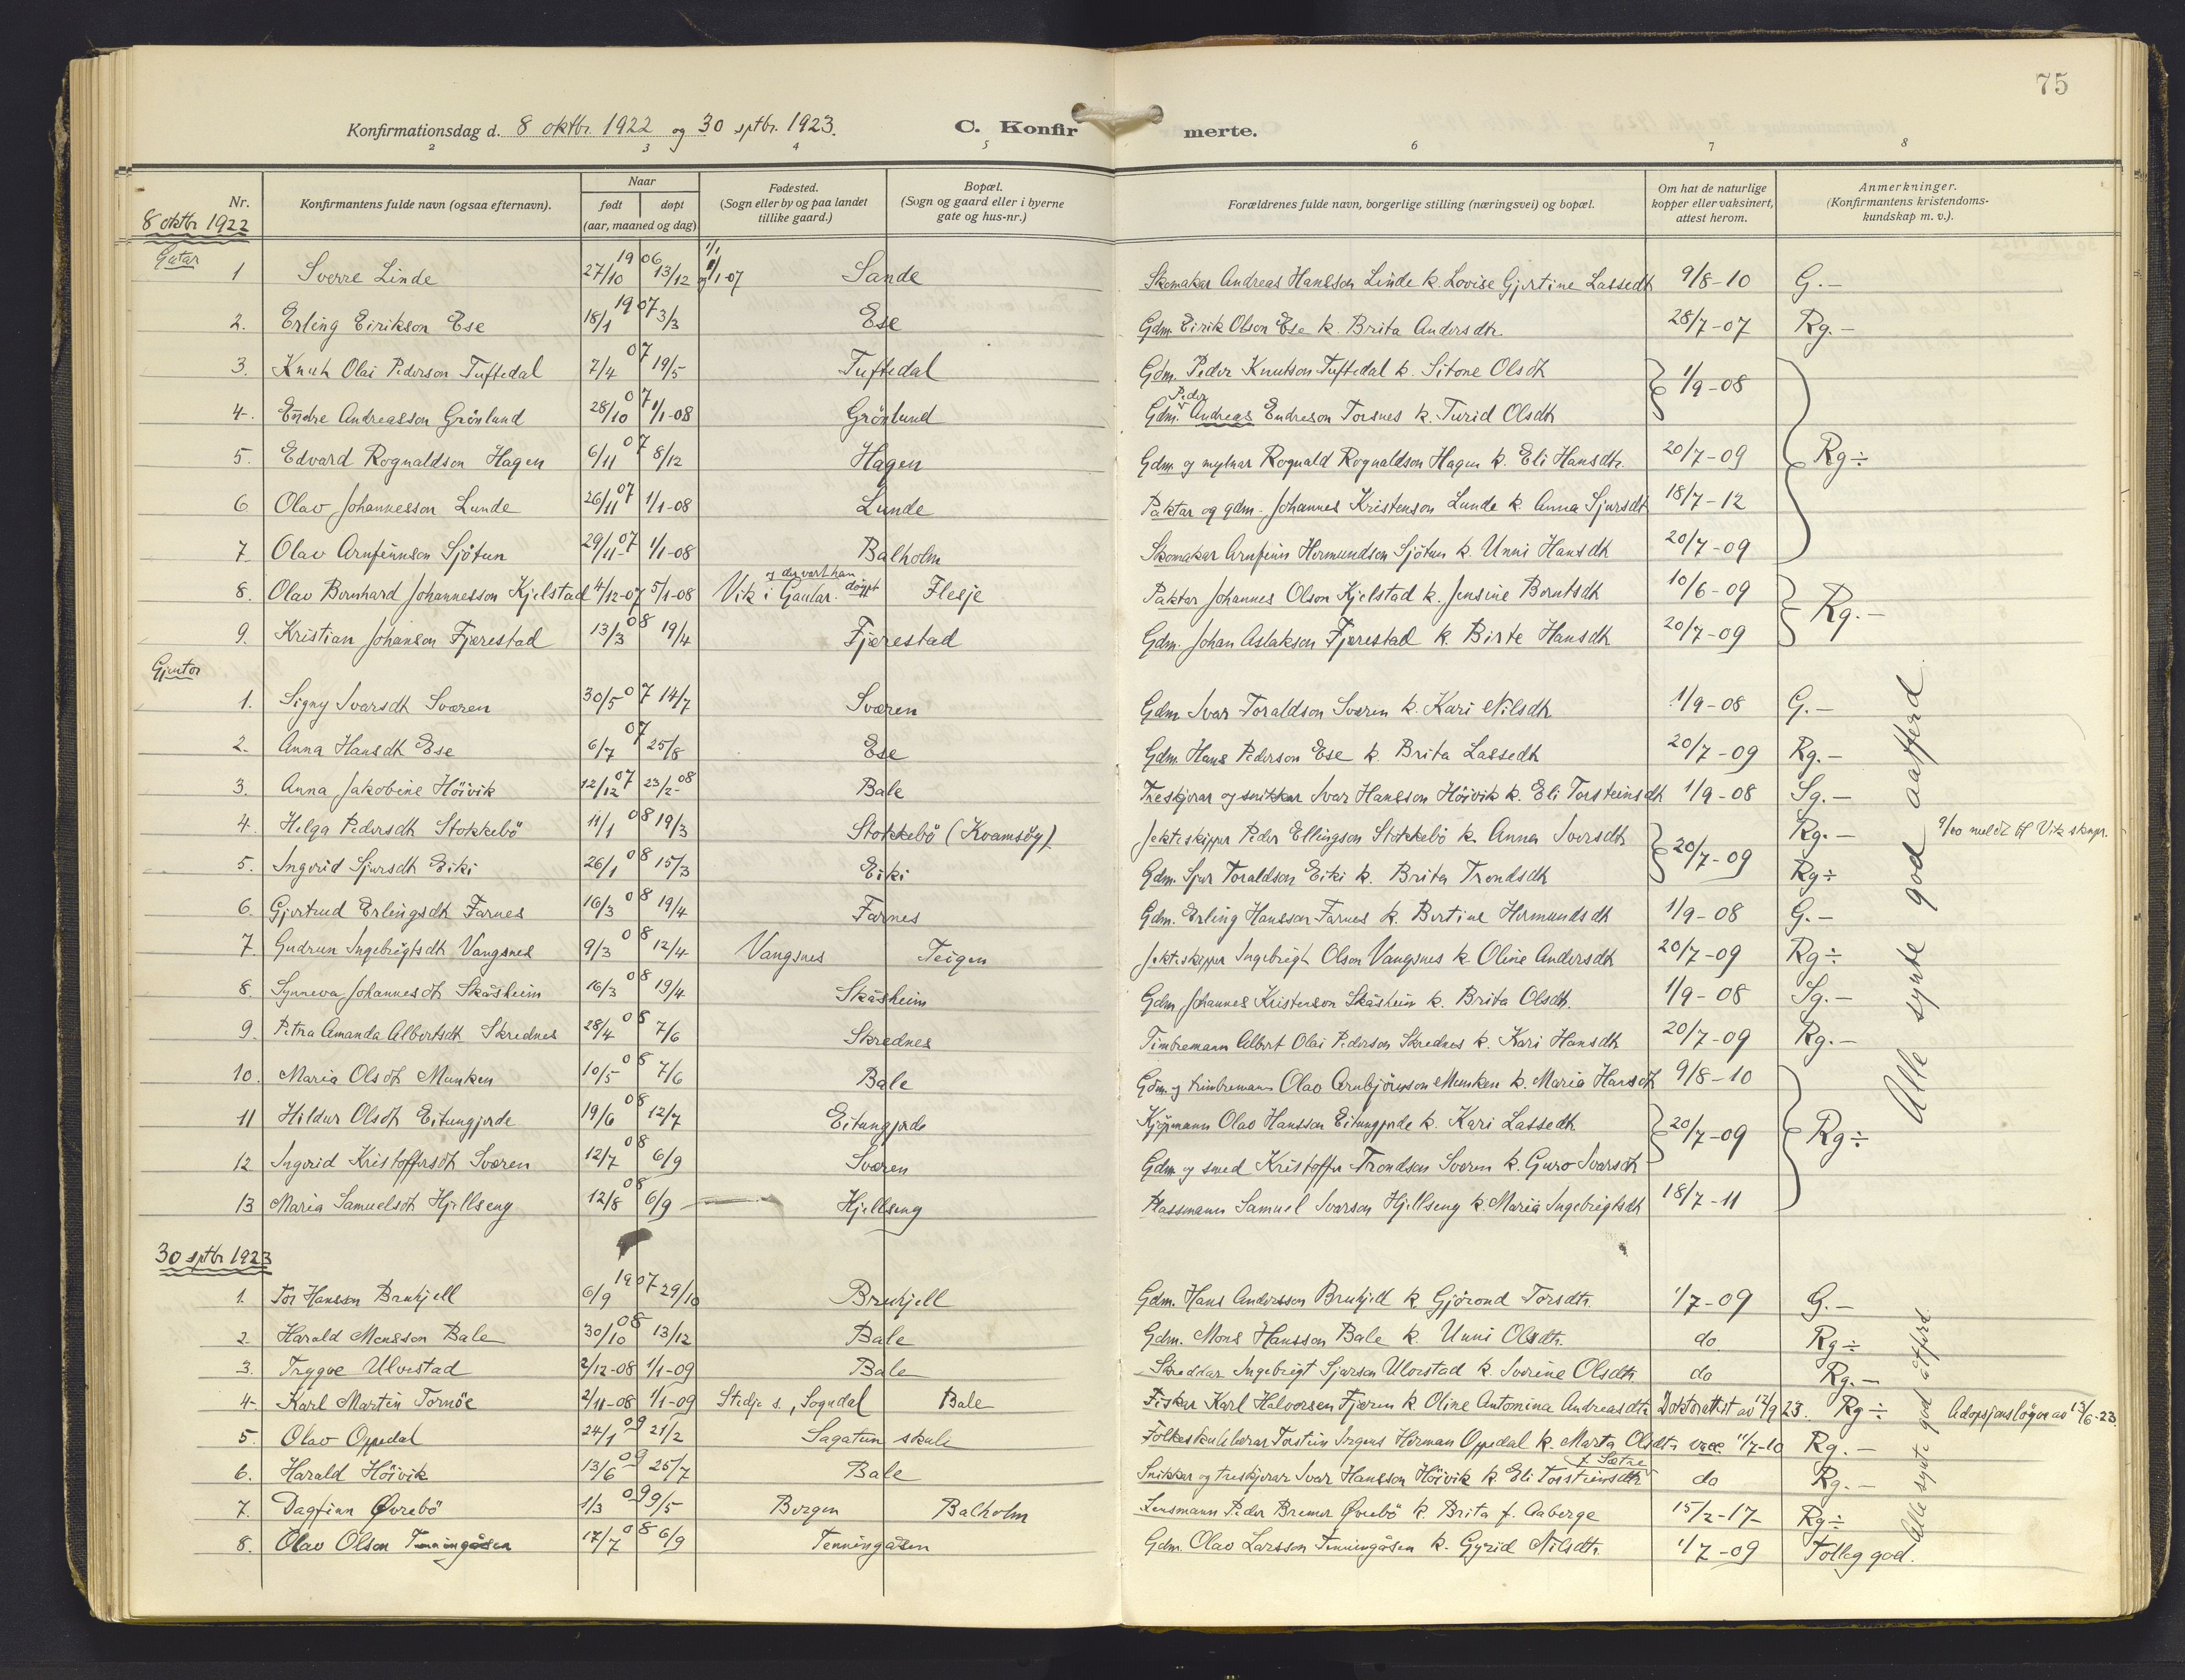 75
Konfirmationsdag d. 8 oktbr. 1922 og 30 sptbr. 1923.
C. Konfirmerte.
2 3 4 5 6 7 8
Nr.
Konfirmantens fulde navn (ogsaa efternavn).
Naar
født døpt
(aar, maaned og dag)
Fødested.
(Sogn eller by og paa landet
tillike gaard.)
Bopæl.
(Sogn og gaard eller i byerne
gate og hus-nr.)
Forældrenes fulde navn, borgerlige stilling (næringsvei) og bopæl.
Om hat de naturlige
kopper eller vaksinert,
attest herom.
Anmerkninger.
(Konfirmantens kristendoms-
kundskap m. v.).
8 oktbr 1922
Gutar
1 Sverre Linde 27/10 1906 13/12 1/1-07 Sande Skomakar Andreas Hansson Linde k. Lovise Gjertine Lassedt 9/8-10 G.-
2. Erling Eirikson Ese 18/1 1907 3/3 Ese Gdm. Eirik Olson Ese k. Brita Andersdtr. 28/7-07 Rg.-
3. Knut Olai Pederson Tuftedal 7/4 07 19/5 Tuftedal Gdm. Peder Knutson Tuftedal k. Sitone Olsdt 1/9-08
Peder
4. Endre Andreasson Grönlund 28/10 07 1/1-08 Grönlund Gdm. Andreas Endreson Torsnes k. Turid Olsdt
5. Edvard Rognaldson Hagen 6/11 07 8/12 Hagen Gdm. og mylnar Rognald Rognaldson Hagen k. Eli Hansdtr. 20/7-09 Rg÷
6 Olav Johannesson Lunde 26/11 07 1/1-08 Lunde Paktar og gdm. Johannes Kristenson Lunde k. Anna Sjursdt 18/7-12
7. Olav Arnfinnson Sjötun 29/11-07 1/1-08 Balholm Skomakar Arnfinn Hermundson Sjötun k. Unni Hansdt 20/7-09
og der vart han
8. Olav Bernhard Johannesson Kjelstad 4/12-07 5/1-08 Vik i Gaular. döypt Flesje Paktar Johannes Olson Kjelstad k. Jensine Berntsdt 10/6-09 Rg.-
9. Kristian Johanson Fjærestad 13/3 08 19/4 Fjærestad Gdm. Johan Aslakson Fjærestad k. Birte Hansdt 20/7-09
Gjentor
1. Signy Ivarsdt Sværen 30/5 07 14/7 Sværen Gdm Ivar Toraldson Sværen k. Kari Nilsdt 1/9-08 G.-
2. Anna Hansdt Ese 6/7 07 25/8 Ese Gdm. Hans Pederson Ese k. Brita Lassedt 20/7-09 Rg.-
3. Anna Jakobine Höivik 12/12 07 23/2-08 Bale Treskjerar og snikkar Ivar Hansson Höivik k. Eli Torsteinsdt 1/9-08 Sg.-
4. Helga Pedersdt Stokkebö 11/1 08 19/3 Stokkebö (Kvamsöy). Jekteskipper Peder Ellingson Stokkebö k. Anna Iversdt 20/7-09 Rg.- 9/10 meldt til Vik sknpr.
5. Ingerid Sjursdt Eiki 26/1 08 15/3 Eiki Gdm. Sjur Toraldson Eiki k. Brita Trondsdt Rg÷
6. Gjertrud Erlingsdt Farnes 16/3 08 19/4 Farnes Gdm. Erling Hansson Farnes k. Bertine Hermundsdt 1/9-08 G.-
7. Gudrun Ingebrigtsdt. Vangsnes 9/3 08 12/4 Vangsnes Teigen Jekteskipper Ingebrigt Olson Vangsnes k. Oline Andersdt 20/7-09 Rg÷
8. Synneva Johannesdt Skåsheim 16/3 08 19/4 Skåsheim Gdm Johannes Kristenson Skåsheim k. Brita Olsdt. 1/9-08 Sg.-
9. Petra Amanda Albertsdt Skrednes 28/4 08 7/6 Skrednes Timbremann Albert Olai Pederson Skrednes k. Kari Hansdt 20/7-09 Rg.-
10. Maria Olsdt Munken 10/5 08 7/6 Bale Gdm. og timbremann Olav Arnbjörnson Munken k. Maria Hansdt 9/8-10
11 Hildur Olsdt Eitungjerde 19/6 08 12/7 Eitungjerde Kjöpmann Olav Hansson Eitungjerde k. Kari Lassedt 20/7-09 Rg÷
12 Ingerid Kristoffersdt Sværen 12/7 08 6/9 Sværen Gdm og smed Kristoffer Trondson Sværen k. Guro Ivarsdt
13 Maria Samuelsdt Hjellseng 12/8 08 6/9 Hjellseng Plassmann Samuel Ivarson Hjellseng k. Maria Ingebrigtsdt 18/7-11
Alle synte god aatferd
30 sptbr 1923
1. Tor Hansson Brukjell 6/9 1907 29/10 Brukjell Gdm. Hans Andersson Brukjell k. Gjörond Torsdtr. 1/7-09 G.-
2. Harald Monsson Bale 30/10 08 13/12 Bale Gdm. Mons Hansson Bale k. Unni Olsdtr. do Rg÷
3. Trygve Ulvestad 2/12-08 1/1-09 Bale Skreddar Ingebrigt Sjurson Ulvestad k. Severine Olsdtr. do Rg.-
4. Karl Martin Tornöe 2/11-08 1/1-09 Stedje s., Sogndal Bale Fiskar Karl Halvorsen Fjæren k Oline Antomina Andreasdtr. Doktorattest av 12/9 23. Rg÷ Adopsjonslöyve av 13/6-23.
5. Olav Oppedal 24/1 09 21/2 Sagatun skule Folkeskulelærar Torstein Jrgens Herman Oppedal k. Marta Olsdtr. vacc. 11/7-10 Rg.-
f. Sætre
6. Harald Höivik 13/6 09 25/7 Bale Snikkar og treskjerar Ivar Hansson Höivik k. Eli Torsteinsdtr do Rg.-
7. Dagfinn Øvrebö 1/3 09 9/5 Bergen Balholm Lensmann Peder Bremer Øvrebö k. Brita f. Aaberge 15/2-17- Rg÷
8. Olav Olson Tenningåsen 17/7 08 6/9 Tenningåsen Gdm. Olav Larsson Tenningåsen k. Gyrid Nilsdtr. 1/7-09 Tolleg god.
Alle synte god åtferd.